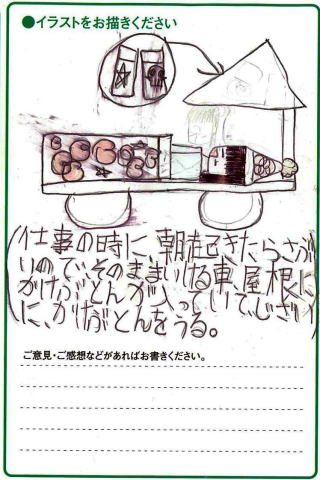 ●イラストをお描きください
(仕事の時に、朝起きたらさむ
いので、そのままいける車、屋根に
かけぶとんが入っていて、じざい
に、かけぶとんをうる。)
ご意見・ご感想などがあればお書きください。